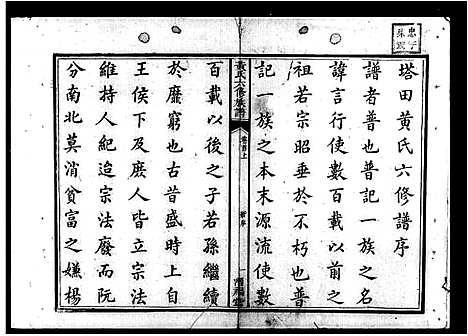 塔田黄氏六修譜序
譜者普也普記一族之名
諱言行使數百載以前之
祖若宗昭垂於不朽也覌
記一族之本末源流使數
黄氏六修族譜
卷首上
新序
一
百載以後之子若孫繼續
於靡窮也古昔盛時上自
王侯下及庶人皆立宗法
維持人紀迨宗法廢而阮
分南北莫消貧富之嫌楊